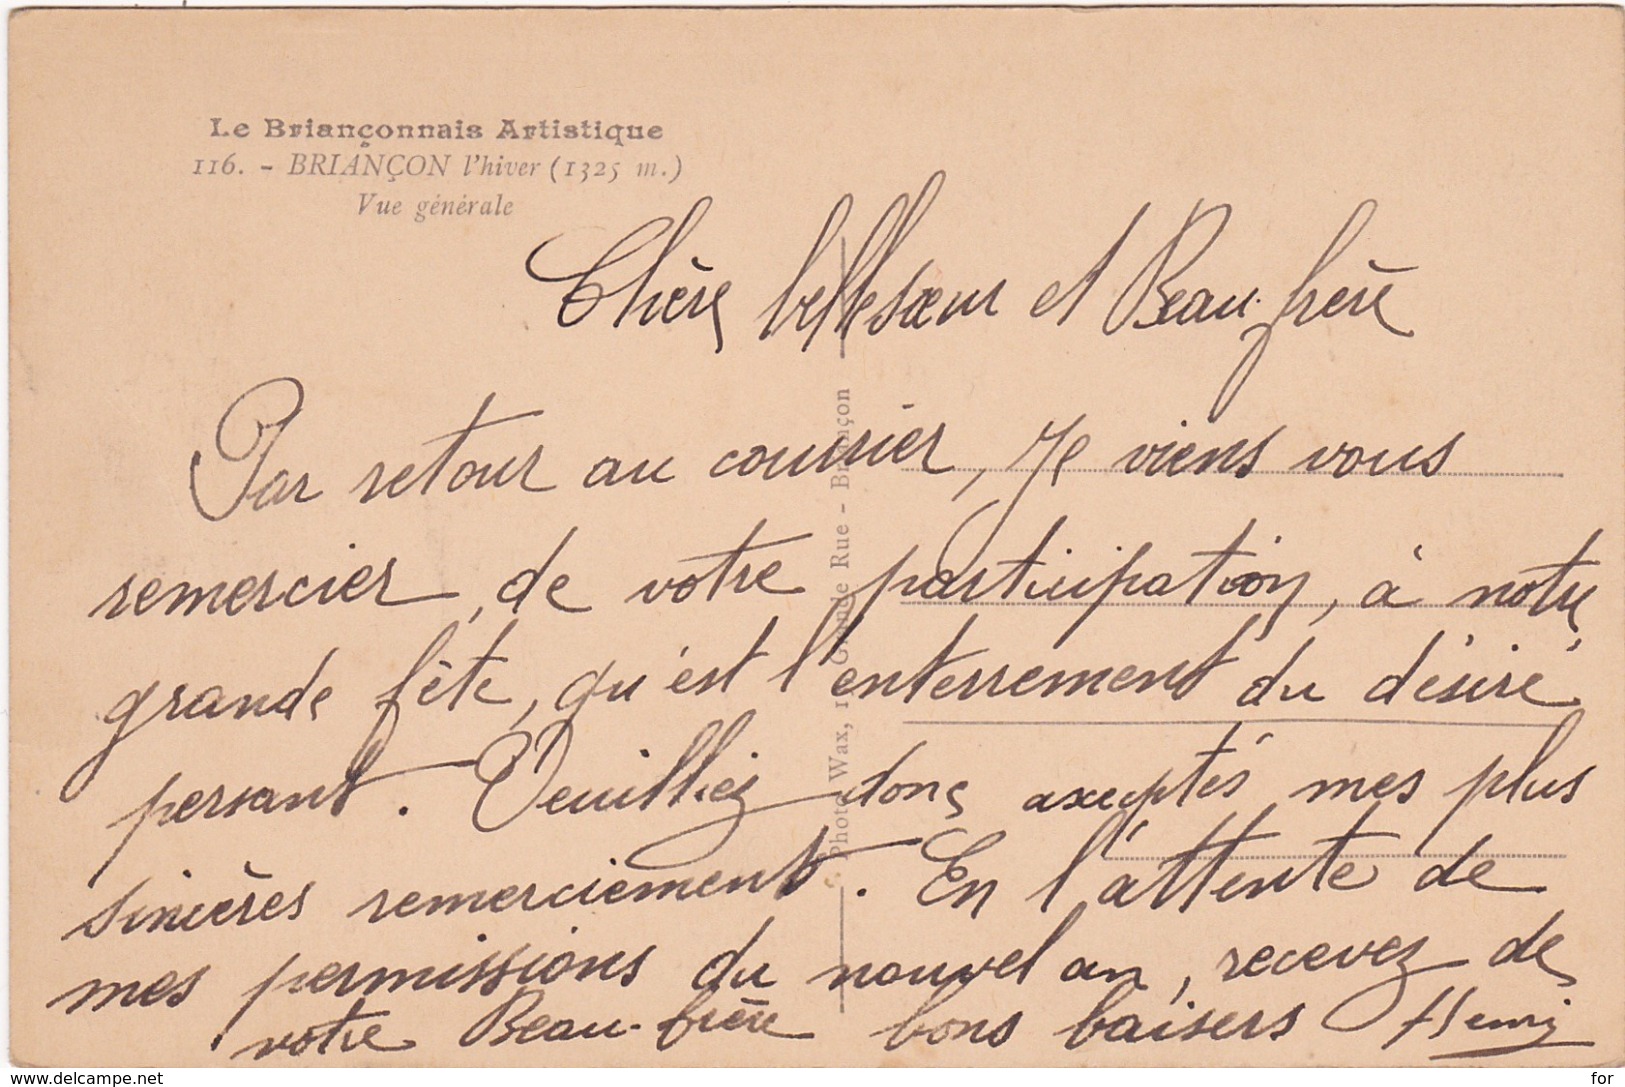 Le Briançonnais Artistique
116. - BRIANÇON l'hiver (1325 m.)
Vue générale
Chère bellesœur et Beau-frère
Par retour au courrier, je viens vous
remercier, de votre participation, à notre
grande fête, qu'est l'enterrement du désiré
persant. Veuilliez donc axceptés mes plus
sincères remerciement. En l'attente de
mes permissions du nouvel an, recevez de
votre Beau-frère bons baisers Henri
Photo Wax, 1 Grande Rue - Briançon
www.delcampe.net
for